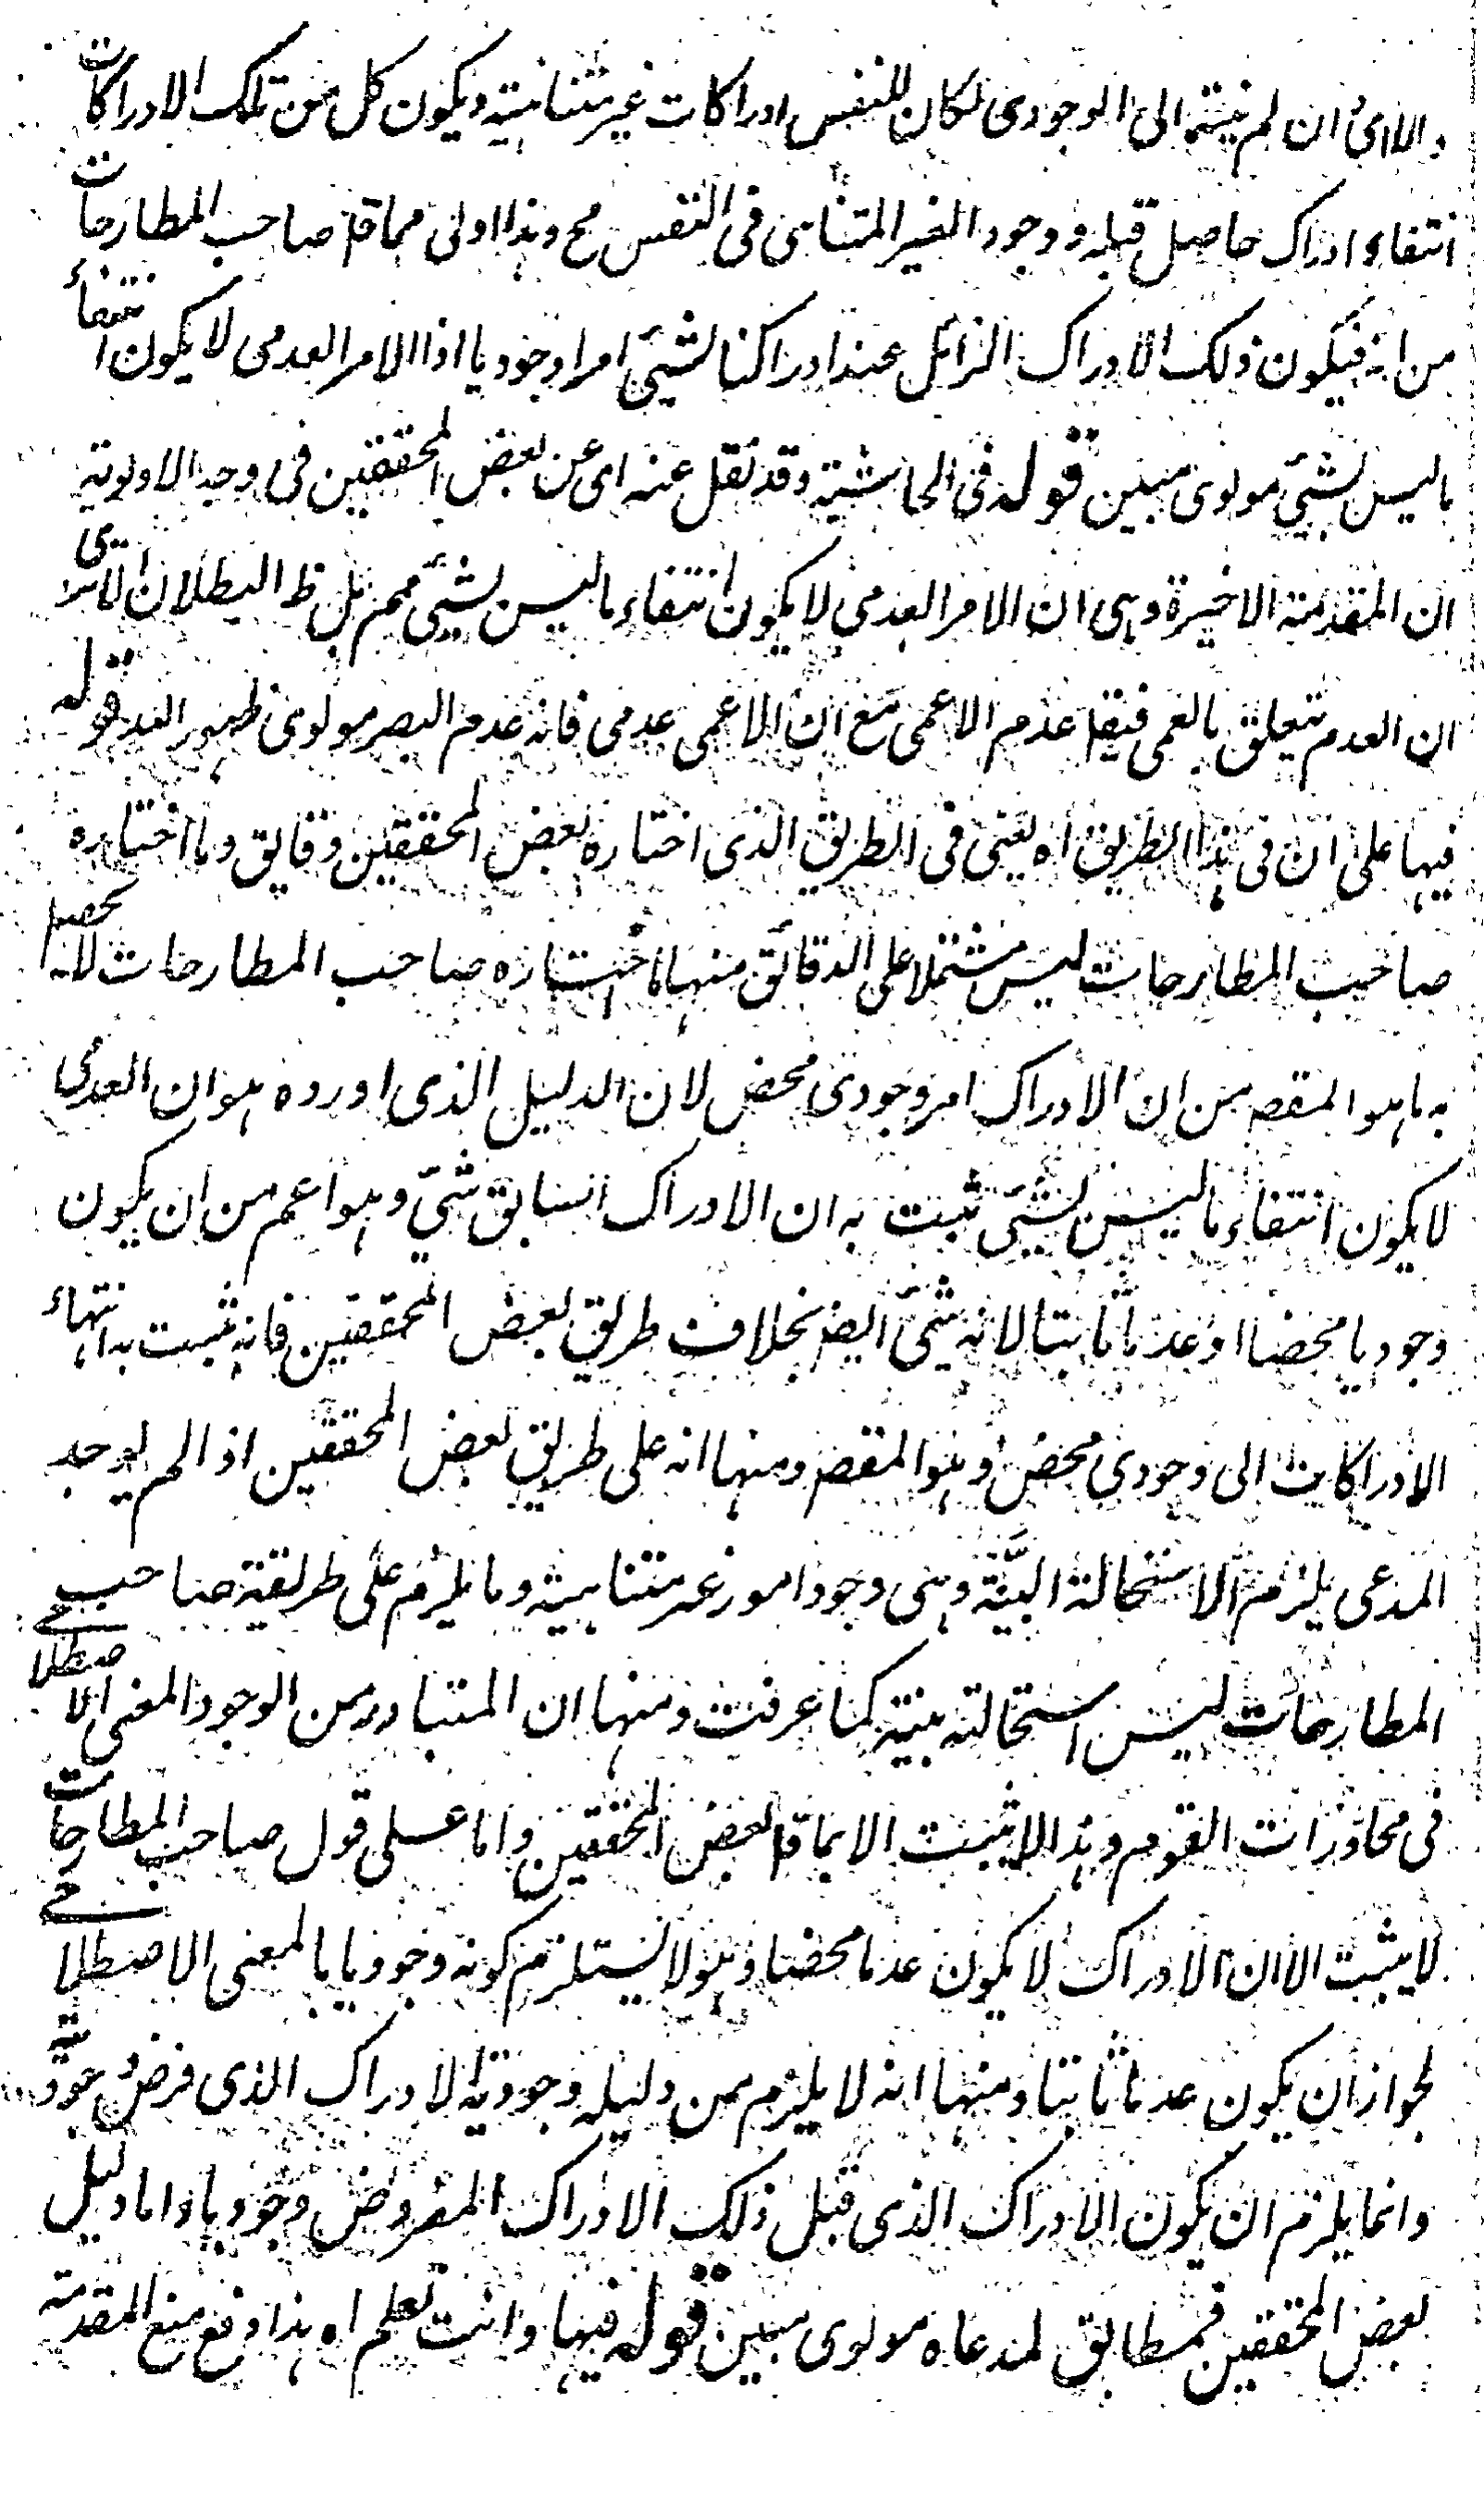 والا اى ان لم ينته الى الوجودى لكان للنفس ادراكات غير متناهية ويكون كل من تلك الادراكات
انتفاء ادراك حاصل قبله ووجود الغير المتناهى فى النفس مح وهذا اولى مما قا صاحب المطارحات
من انه فيكون ذلك الادراك الزائل عند ادراكنا لشىء امرا وجوديا اذ الامر العدمى لا يكون انتفاء
ما ليس بشىء مولوى مبين قوله فى الحاشية وقد نقل عنه اى عن بعض المحققين فى وجه الاولوية
ان المقدمة الاخيرة وهى ان الامر العدمى لا يكون انتفاء ما ليس بشىء مم بل ظ البطلان الا ترى
ان العدم يتعلق بالعمى فيقا عدم الاعمى مع ان الاعمى عدمى فانه عدم البصر مولوى ظهور الله قوله
فيها على ان فى هذا الطريق اه يعنى فى الطريق الذى اختاره بعض المحققين دقايق وما اختاره
صاحب المطارحات ليس مشتملا على الدقائق منها ما اختاره صاحب المطارحات لا يحصل
به ما هو المقصد من ان الادراك امر وجودى محض لان الدليل الذى اورده هو ان العدمى
لا يكون انتفاء ما ليس بشىء ثبت به ان الادراك السابق شىء وهو اعم من ان يكون
وجوديا محضا او عدما ثابتا لانه شىء ايضا بخلاف طريق بعض المحققين فانه ثبت به انتهاء
الادراكات الى وجودى محض وهو المقصد ومنها انه على طريق بعض المحققين اذا لم يوجد
المدعى يلزم الاستحالة البيّنة وهى وجود امور غير متناهية وما يلزم على طريقة صاحب
المطارحات ليس استحالته بينة كما عرفت ومنها ان المتبادر من الوجود المعنى الاصطلاحى
فى محاورات القوم وهذا لا يثبت الا بما قا بعض المحققين واما على قول صاحب المطارحات
لا يثبت الا ان الادراك لا يكون عدما محضا وهو لا يستلزم كونه وجوديا بالمعنى الاصطلاحى
لجواز ان يكون عدما ثابتا ومنها انه لا يلزم من دليله وجودية الادراك الذى فرض وجوديته
وانما يلزم ان يكون الادراك الذى قبل ذلك الادراك المفروض وجوديا واما دليل
بعض المحققين فمطابق لمدعاه مولوى مبين قوله فيها وانت تعلم اه هذا دفع منع المقدمة